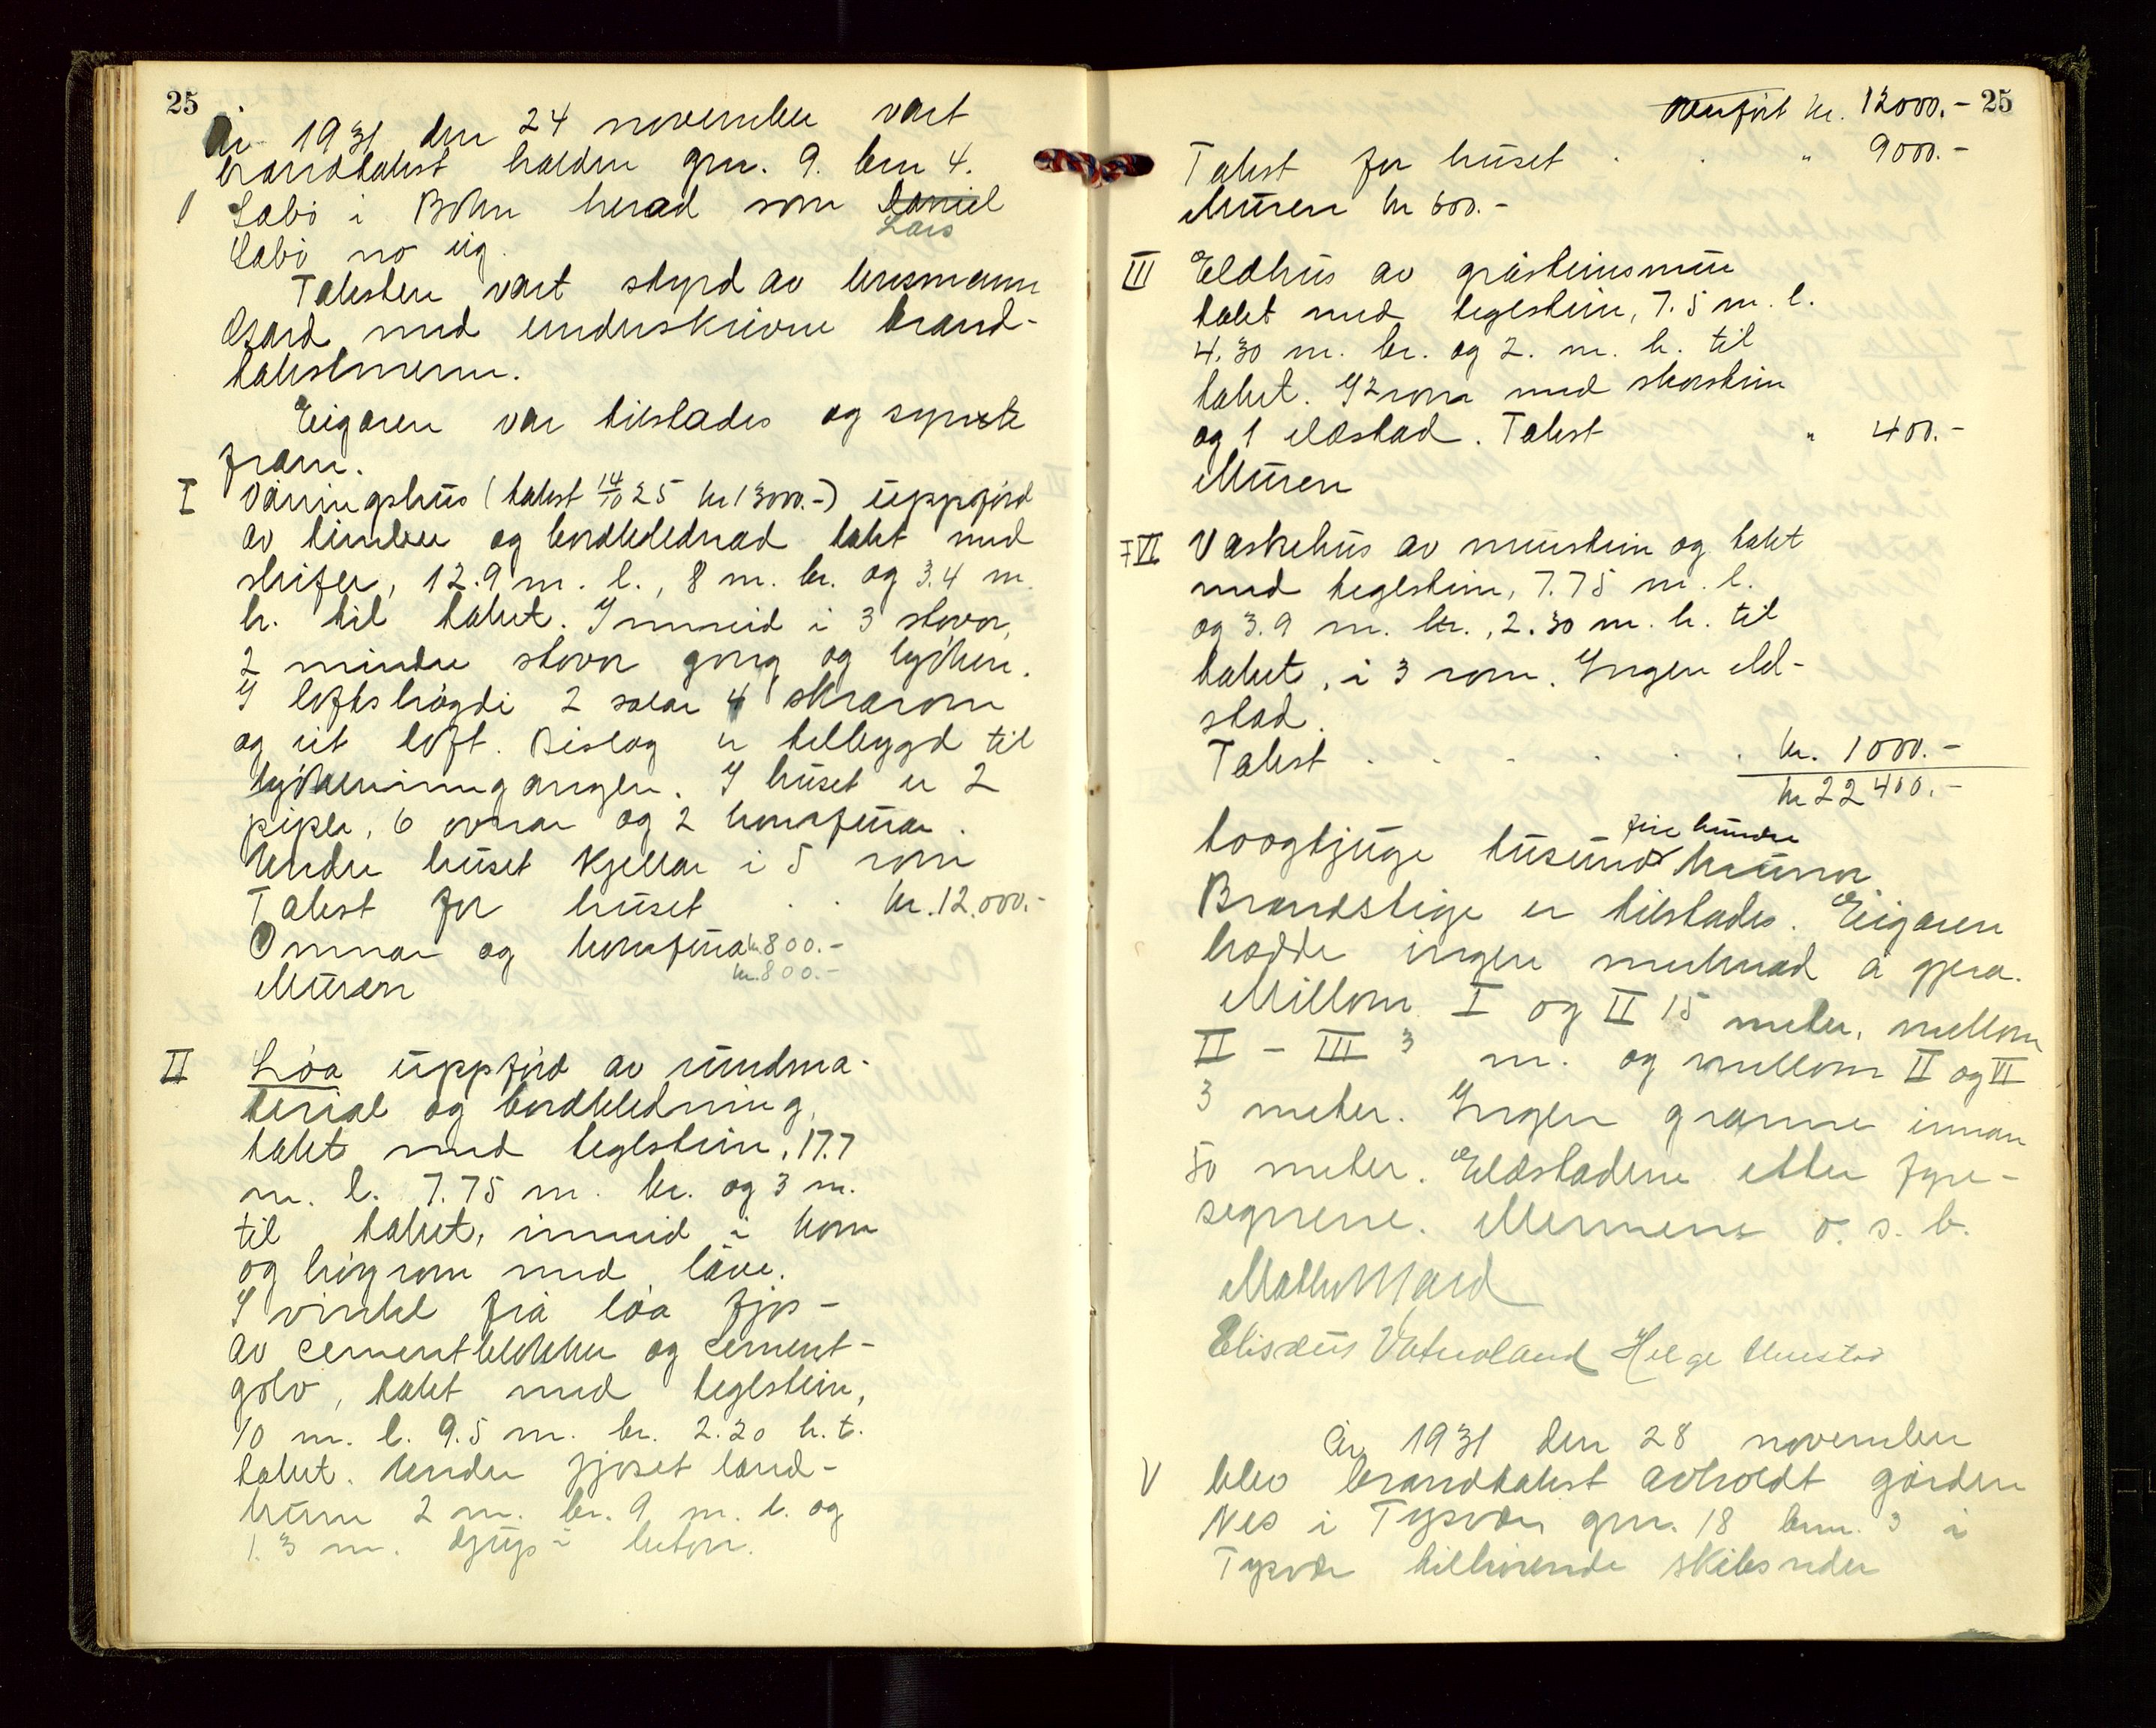 25
År 1931 den 24 november vart
brandtakst halden gnr. 9. bnr 4.
Labö i Bokn herad som Daniel
Lars
Labö no eig.
Taksten vart styrd av lensmann
Gard med underskrivne brand-
takstmenn.
Eigaren var tilstades og synte
fram.
I Våningshus (takst 14/10 25 kr 13000.-) uppförd
av timber og bordklednad takt med
skifer, 12.9 m. l., 8 m. br. og 3.4 m.
h. til taket. Innreid i 3 stovor,
2 mindre stovor gong og kjöken.
I loftshögdi 2 salar 4 skrårom
og eit loft. Bislag er tilbygd til
kjökeninngangen. I huset er 2
piper, 6 ovnar og 2 komfurar.
Under huset kjellar i 5 rom
Takst for huset . . kr. 12.000.-
Omnar og komfurar kr. 800.-
Muren kr. 800.-
II Löa uppförd av rundma-
terial og bordkledning,
takt med teglstein, 17.7
m. l. 7.75 m. br. og 3 m.
til taket, innreid i korn
og höyrom med låve.
I vinkel frå löa fjos
av cementblokker og cement-
golv, takt med teglstein,
10 m. l. 9.5 m. br. 2.20 h. t.
taket. Under fjoset land-
kum 2 m. br. 9 m. l. og
1.3 m. djup i beton.
Overfört kr. 12000.- 25
Takst for huset . . " 9000.-
Muren kr 600.-
III Eldhus av gråsteinsmur
takt med teglstein, 7.5 m. l.
4.30 m. br. og 2. m. h. til
taket. I 2 rom med skorstein
og 1 eldstad. Takst " 400.-
Muren
VI Vaskehus av murstein og takt
med teglstein, 7.75 m. l.
og 3.9 m. br., 2.30 m. h. til
taket, i 3 rom. Ingen eld-
stad.
Takst . . . . . kr. 1000.-
kr 22400.-
toogtjuge tusund fire hundre kronor
Brandstige er tilstades. Eigaren
hadde ingen merknad å gjera.
Millom I og II 15 meter, mellom
II - III 3 m. og mellom II og VI
3 meter. Ingen granne innan
50 meter. Eldstadene etter fyre-
segnene. Mennene o. s. b.
Elisæus Vatnaland Helge
År 1931 den 28 november
V blev brandtakst avholdt gården
Nes i Tysvær gnr. 18 bnr. 3 i
Tysvær tilhörende skibsreder